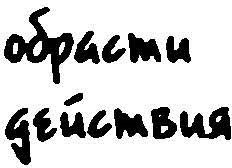 обрасти
действия